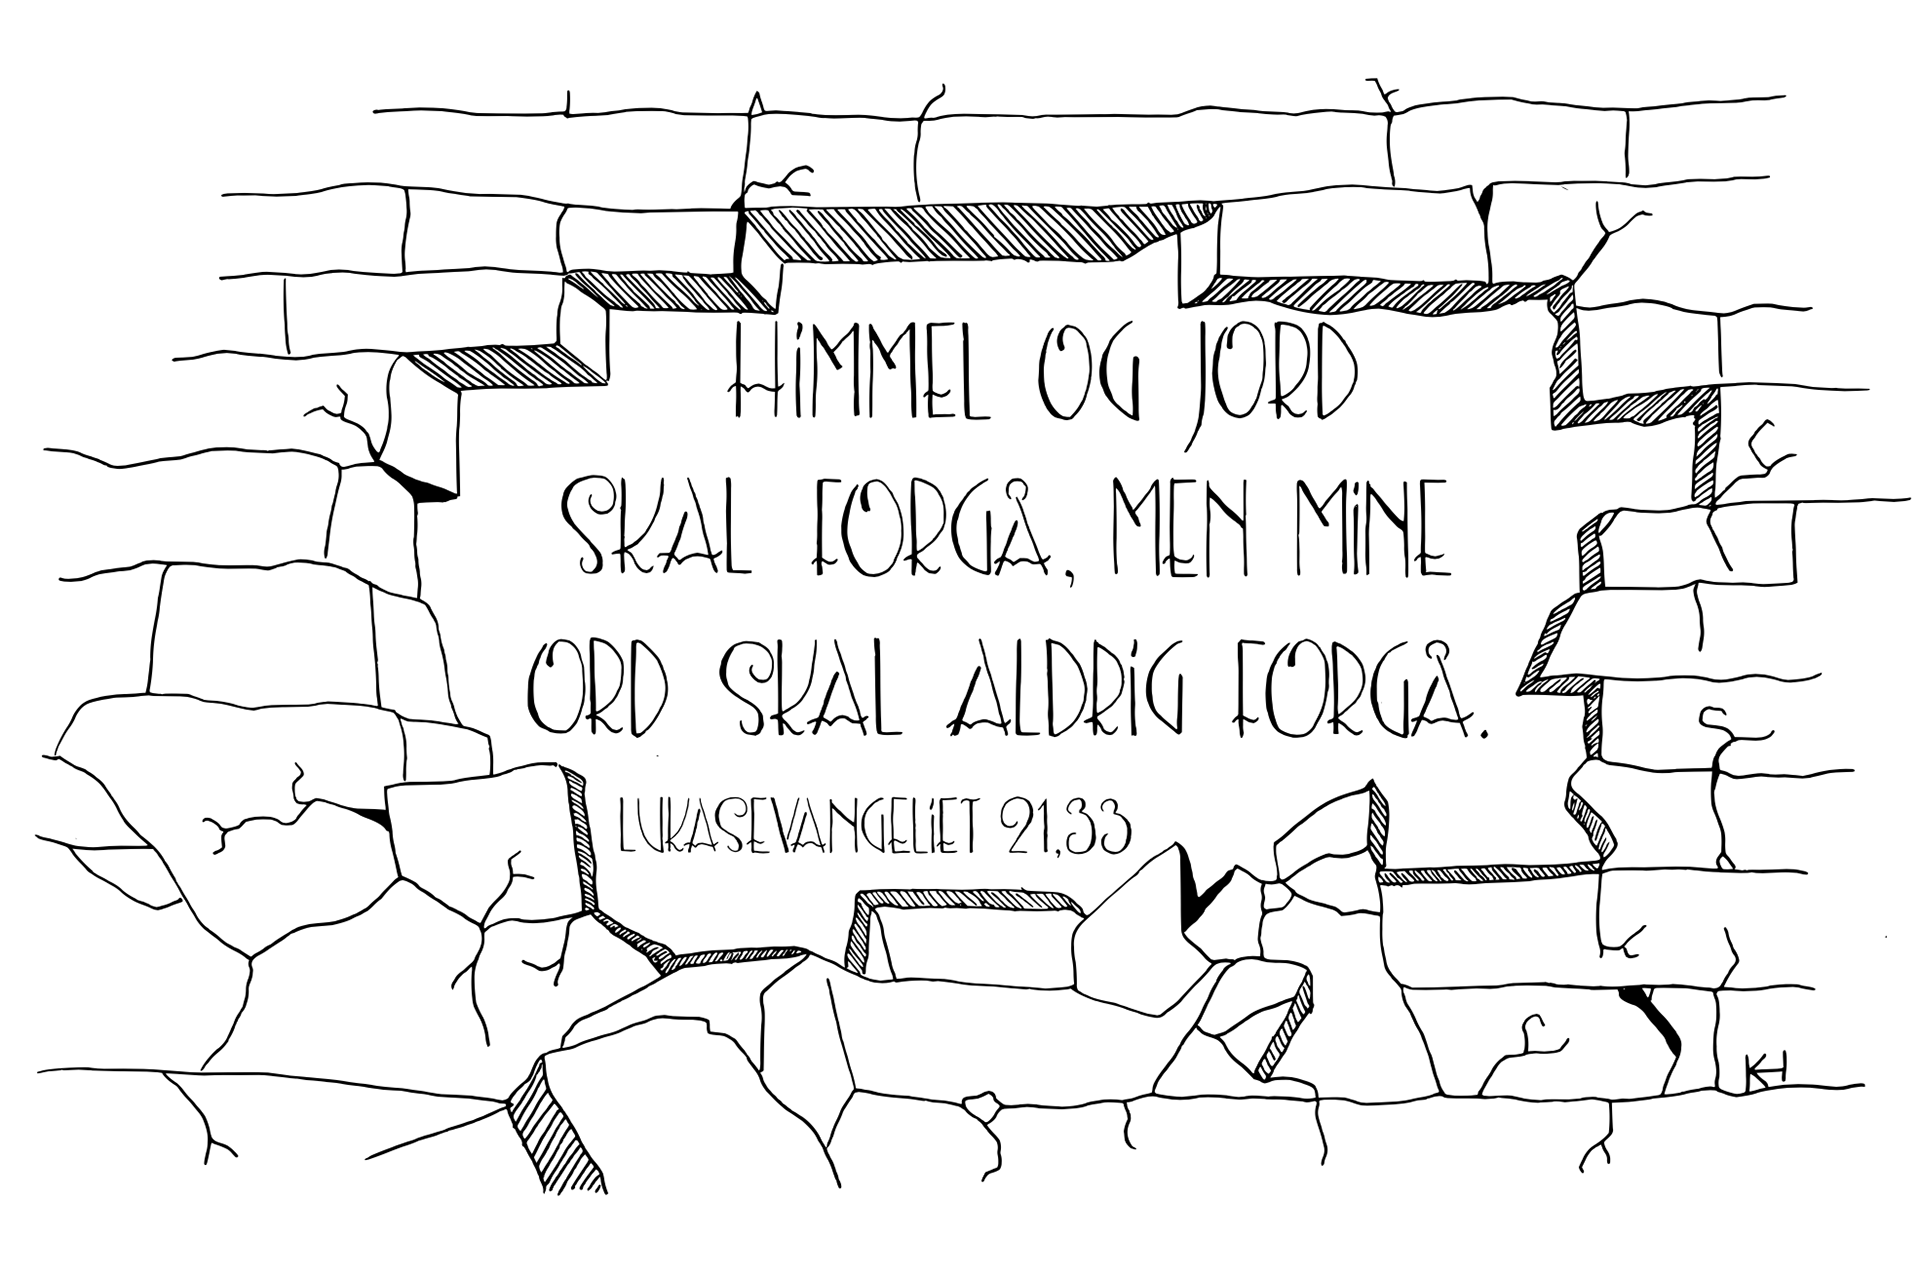 HiMMEL OG JORD
SKAL FORGÅ, MEN MiNE
ORD SKAL ALDRiG FORGÅ.
LUKASEVANGELiET 21,33
KH